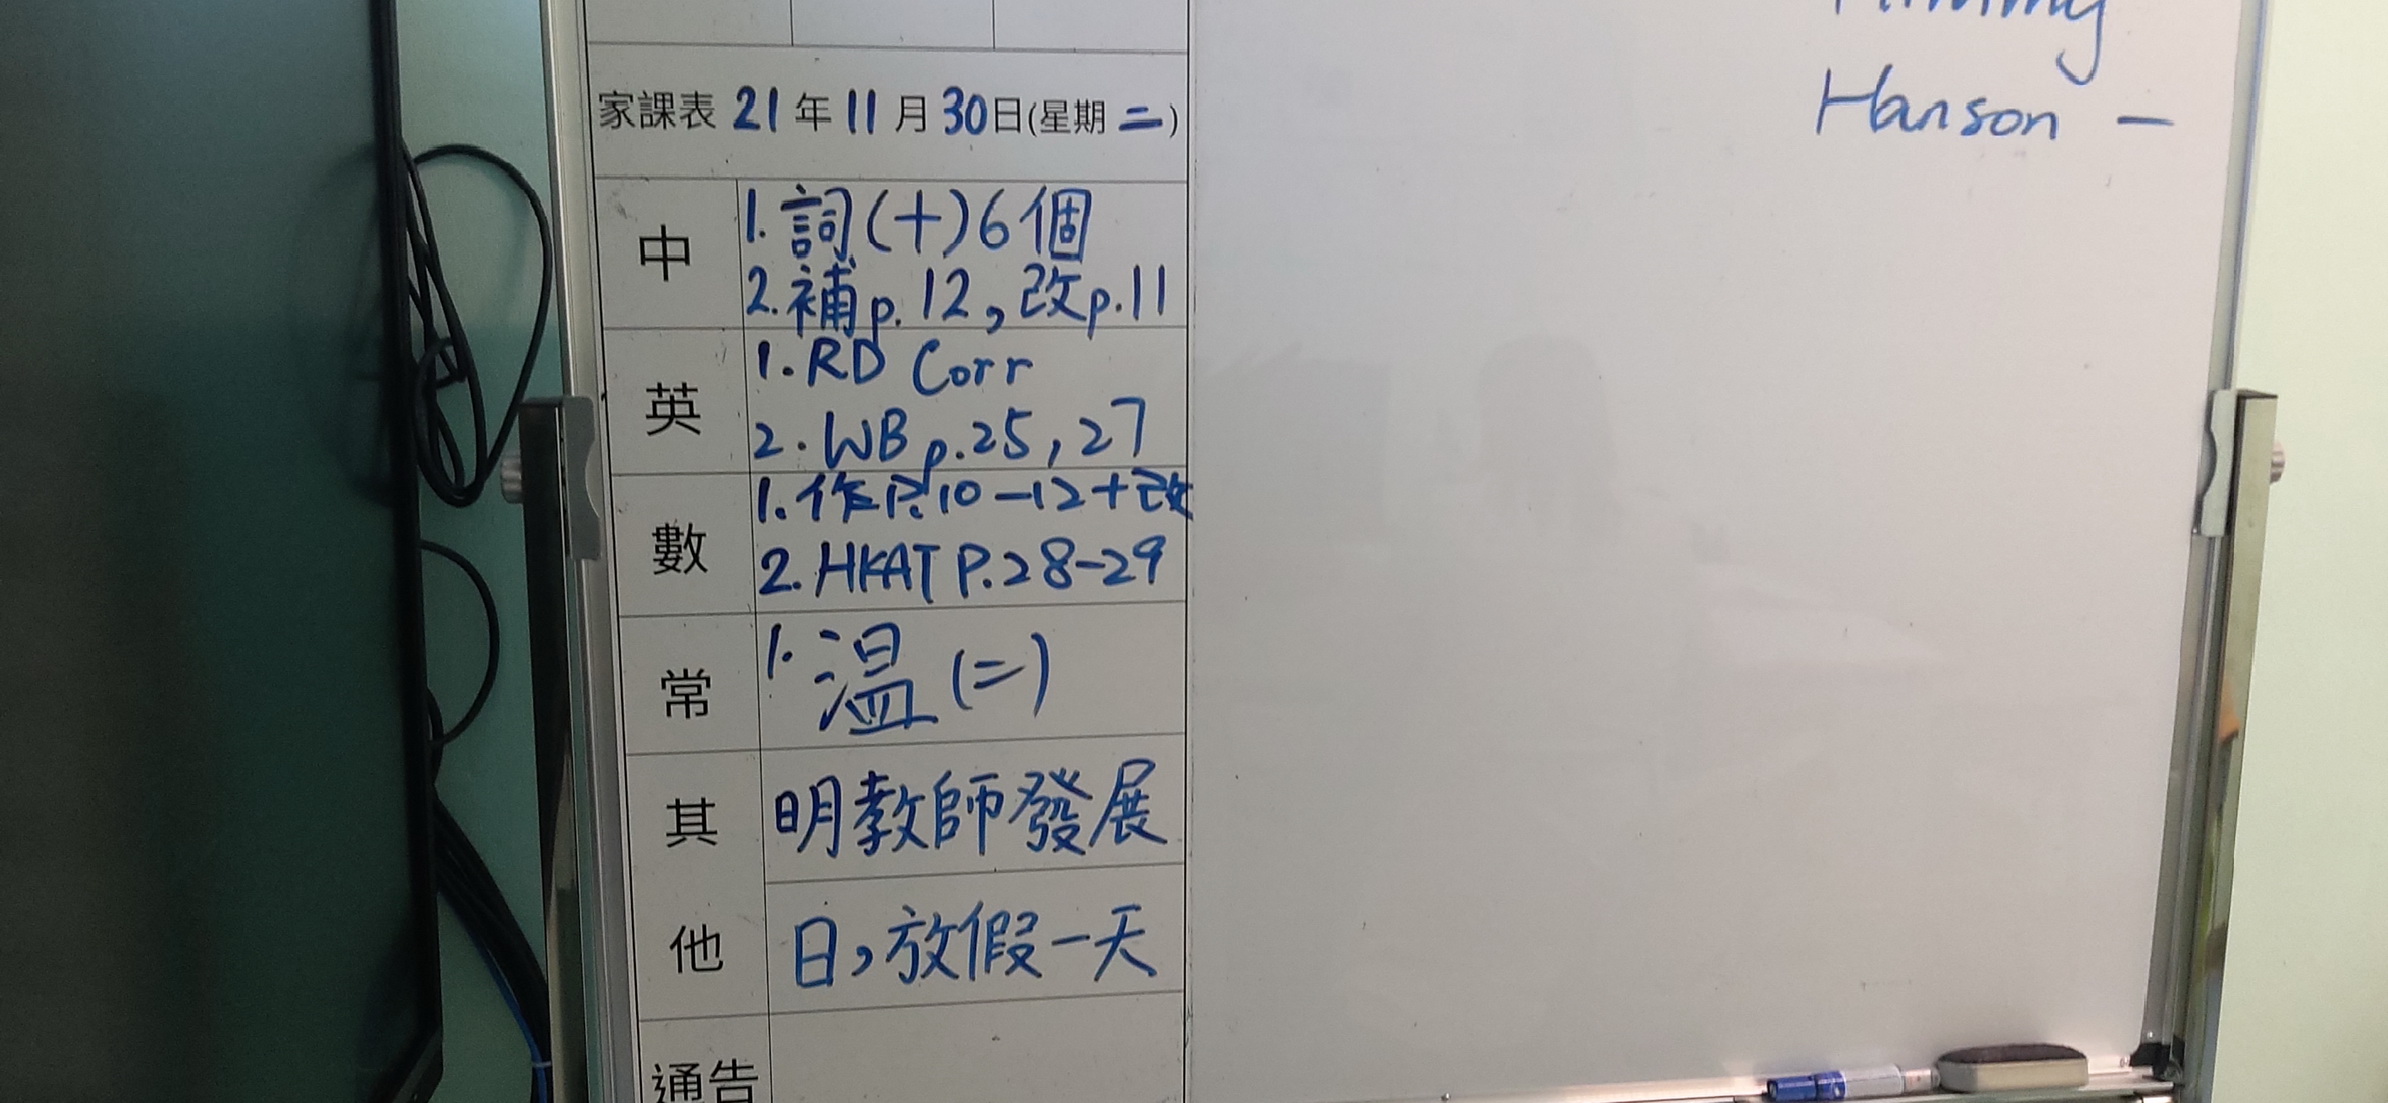 家課表 21年11月30日(星期二)
中
1. 詞(十)6個
2. 補p.12,改p.11
英
1. RD Corr
2. WB p.25, 27
數
1. 作P.10-12+改
2. HKAT P.28-29
常
1. 温(二)
其他
明教師發展
日,放假一天
通告
Hanson -